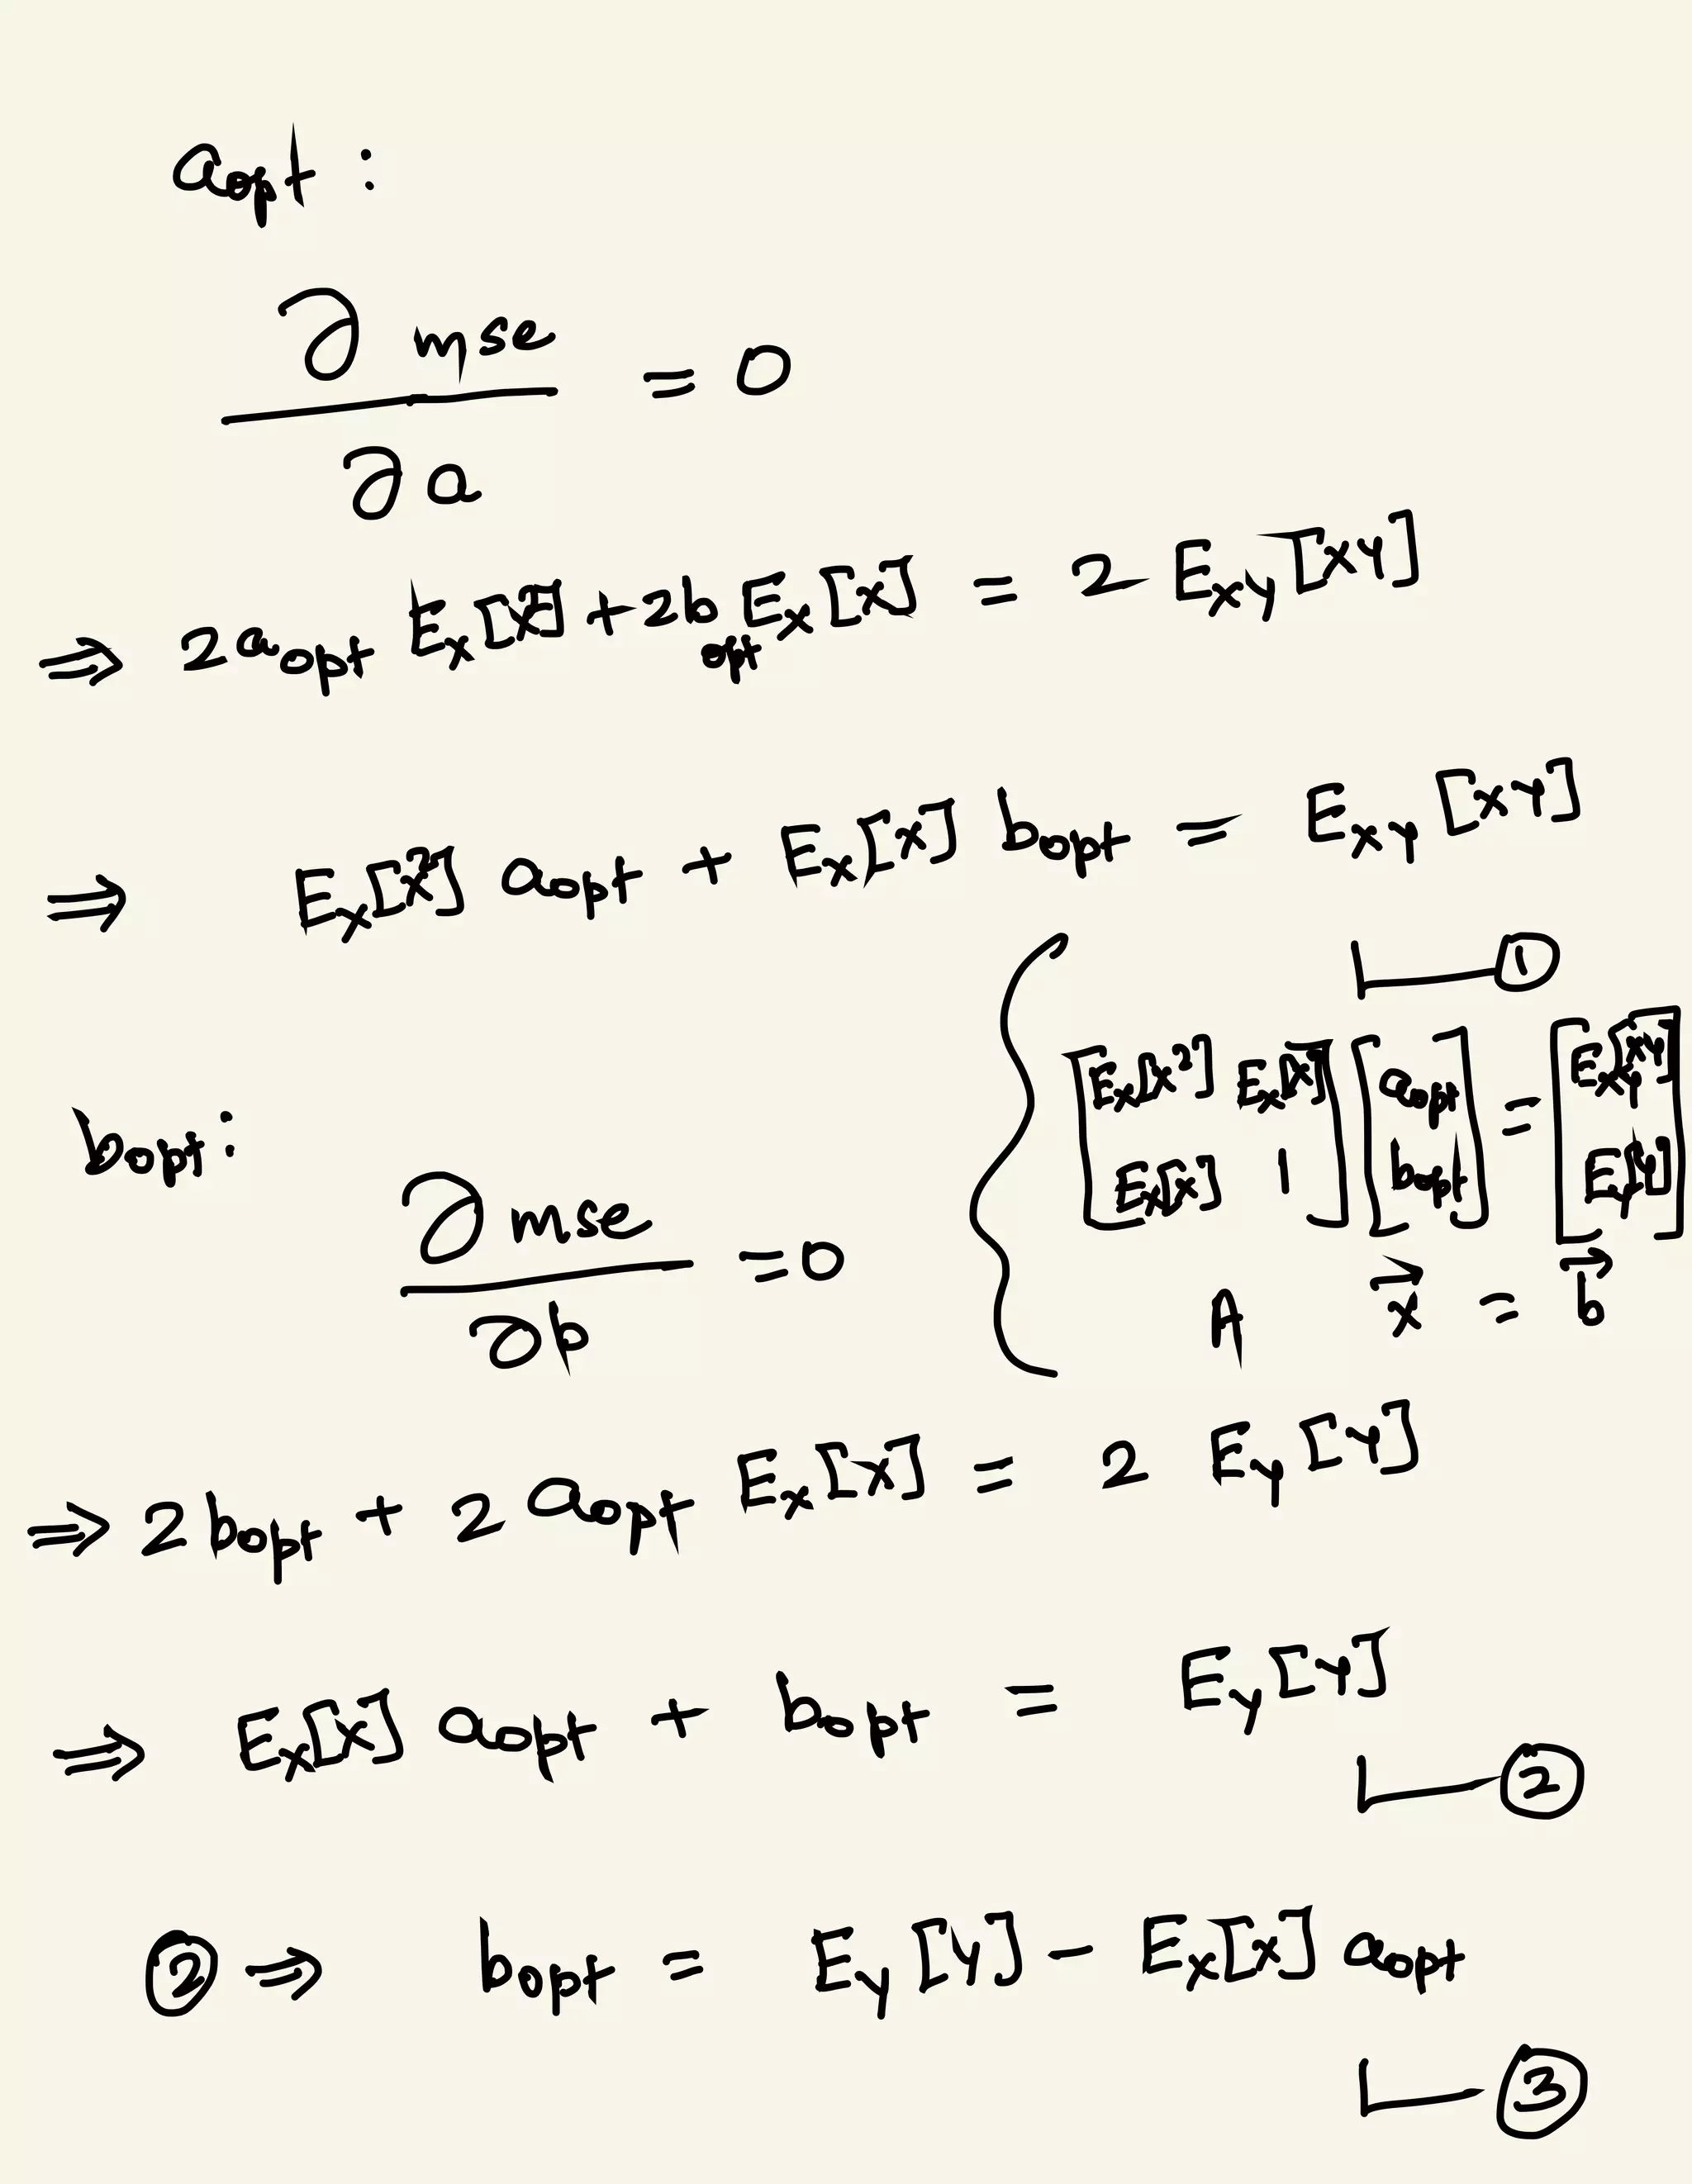 a_opt :
∂ mse / ∂a = 0
⇒ 2 a_opt E_X[X²] + 2 b_opt E_X[X] = 2 E_XY[XY]
⇒ E_X[X²] a_opt + E_X[X] b_opt = E_XY[XY]
①
[E_X[X²] E_X[X]; E_X[X] 1] [a_opt; b_opt] = [E_XY[XY]; E_Y[Y]]
A x⃗ = b⃗
b_opt :
∂ mse / ∂b = 0
⇒ 2 b_opt + 2 a_opt E_X[X] = 2 E_Y[Y]
⇒ E_X[X] a_opt + b_opt = E_Y[Y]
②
② ⇒ b_opt = E_Y[Y] - E_X[X] a_opt
③